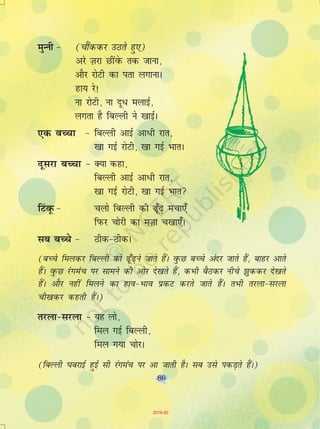 मुन्नी - (चौंककर उठते हुए)
अरे ज़रा छींके तक जाना,
और रोटी का पता लगाना।
हाय रे!
ना रोटी, ना दूध मलाई,
लगता है बिल्ली ने खाई।
एक बच्चा - बिल्ली आई आधी रात,
खा गई रोटी, खा गई भात।
दूसरा बच्चा - क्या कहा,
बिल्ली आई आधी रात,
खा गई रोटी, खा गई भात?
टिंकू - चलो बिल्ली की ढूँढ़ मचाएँ
फिर चोरी का मज़ा चखाएँ।
सब बच्चे - ठीक-ठीक।
(बच्चे मिलकर बिल्ली को ढूँढ़ने जाते हैं। कुछ बच्चे अंदर जाते हैं, बाहर आते
हैं। कुछ रंगमंच पर सामने की ओर देखते हैं, कभी बैठकर नीचे झुककर देखते
हैं। और नहीं मिलने का हाव-भाव प्रकट करते जाते हैं। तभी तरला-सरला
चीखकर कहती हैं।)
तरला-सरला - यह लो,
मिल गई बिल्ली,
मिल गया चोर।
(बिल्ली घबराई हुई सी रंगमंच पर आ जाती है। सब उसे पकड़ते हैं।)
86
2019-20